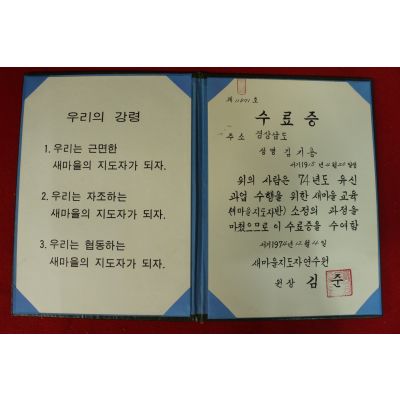 우리의 강령
1. 우리는 근면한
새마을의 지도자가 되자.
2. 우리는 자조하는
새마을의 지도자가 되자.
3. 우리는 협동하는
새마을의 지도자가 되자.
제 호
수료증
주소 경상남도
성명 김
위의 사람은 74년도 유신
과업 수행을 위한 새마을교육
(새마을지도자반) 소정의 과정을
마쳤으므로 이 수료증을 수여함
서기 1974년 12월 14일
새마을지도자연수원
원장 김 준